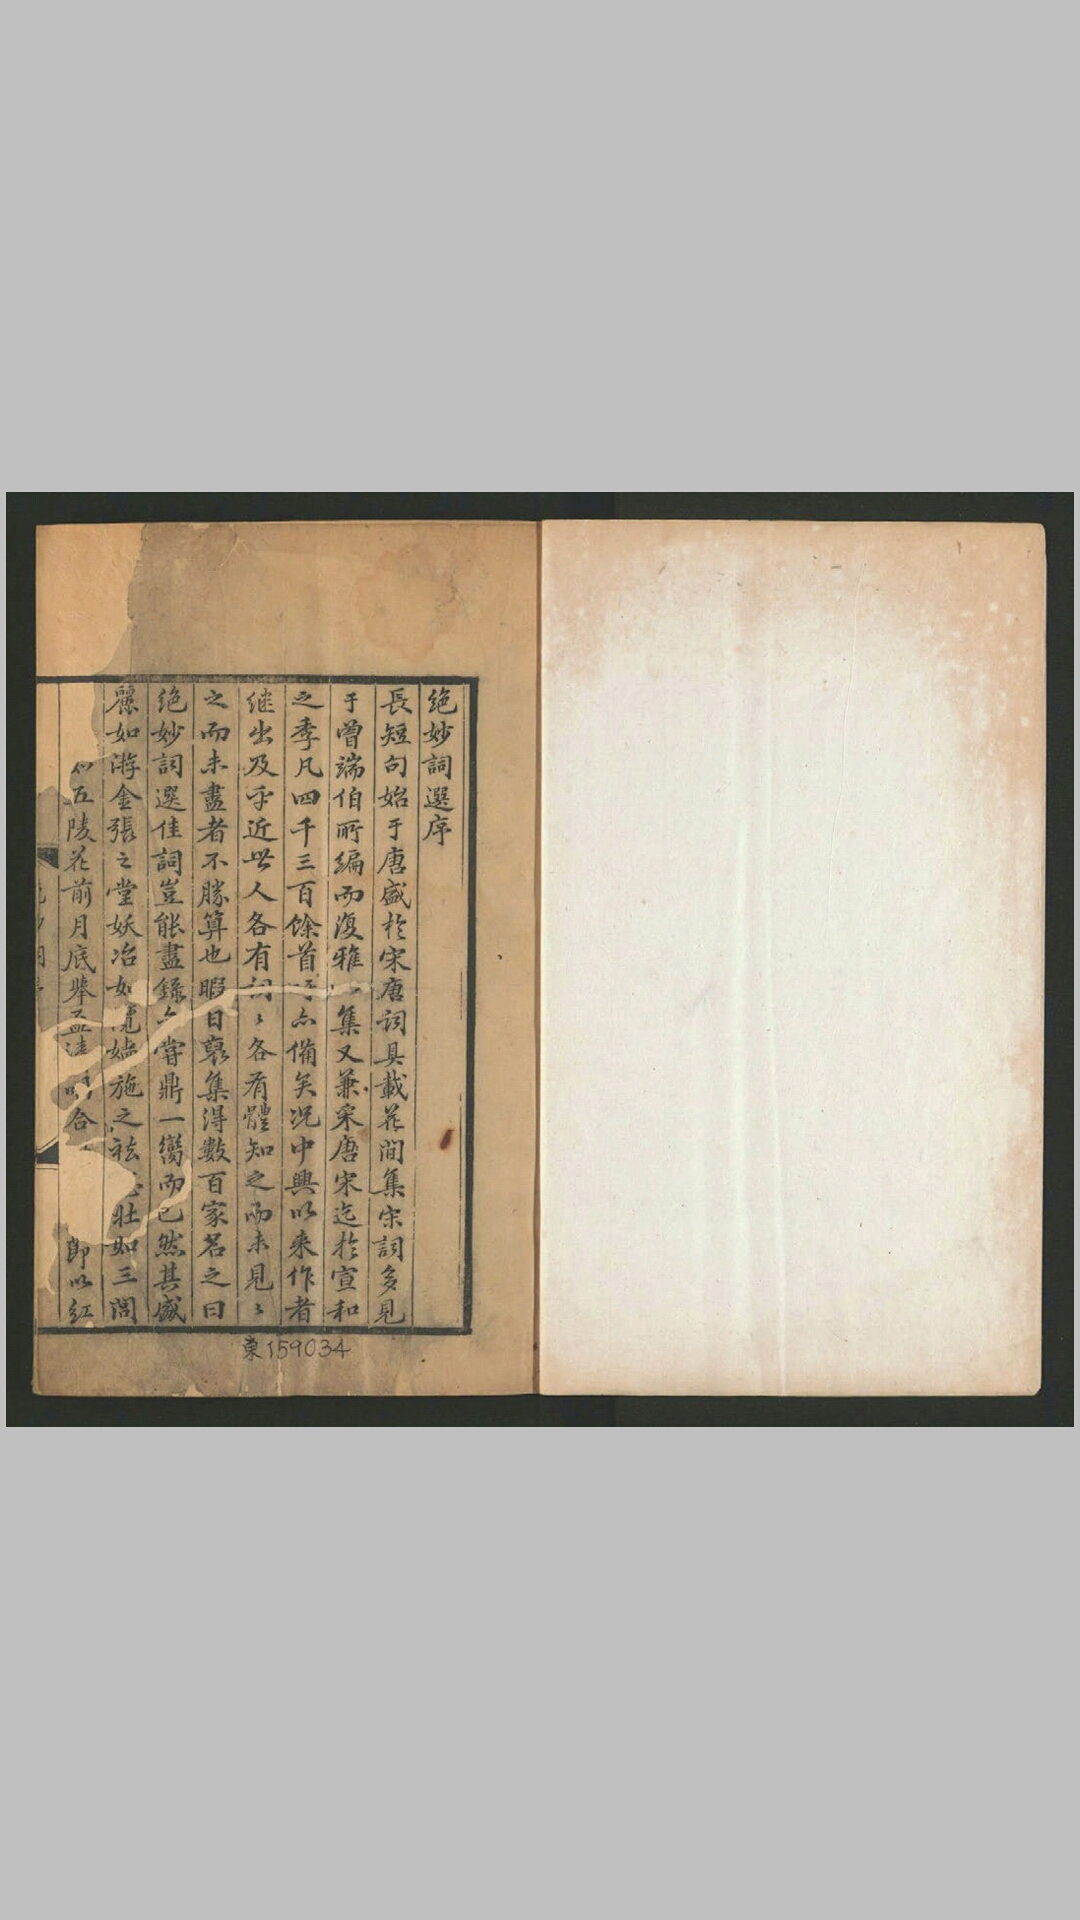 絶妙詞選序
長短句始于唐盛於宋唐詞具載花間集宋詞多見
于曾端伯所編而復雅一集又兼采唐宋迄於宣和
之季凡四千三百餘首吁亦備矣况中興以來作者
继出及乎近世人各有詞〻各有體知之而未見〻
之而未盡者不勝算也暇日裒集得數百家名之曰
绝妙詞選佳詞豈能盡錄亦嘗鼎一臠而已然其盛
麗如游金張之堂妖冶如攬嬙施之袪 壯如三閭
五陵花前月底舉盃清唱合 即以紅
東159034